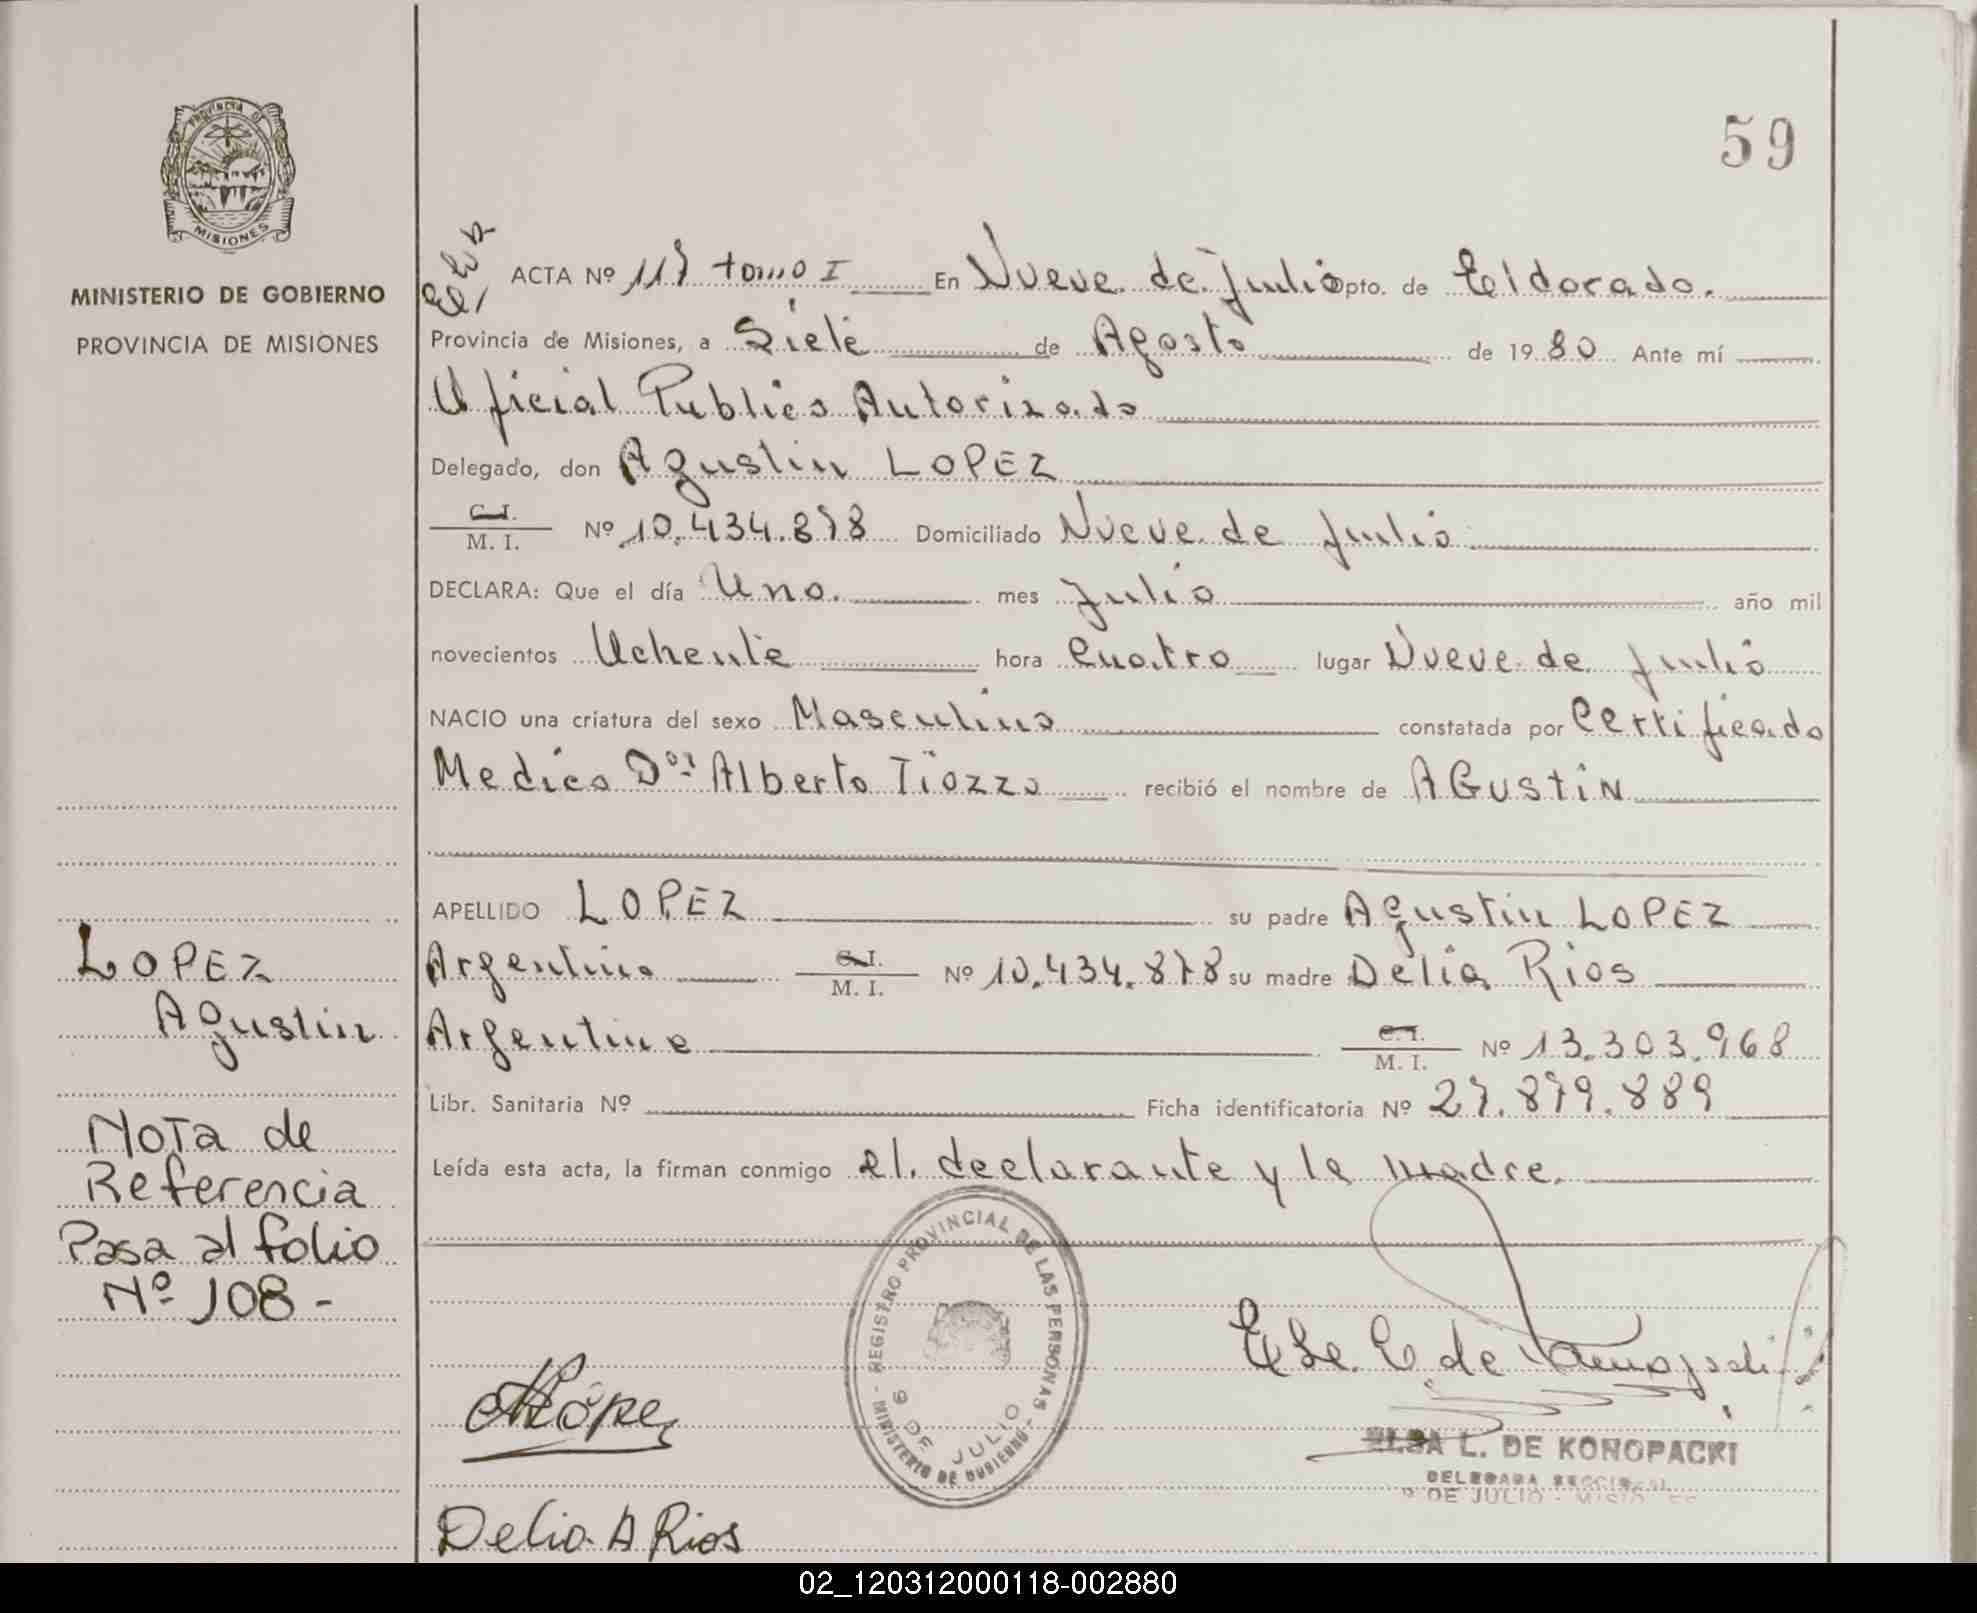 PROVINCIA DE
MISIONES
MINISTERIO DE GOBIERNO
PROVINCIA DE MISIONES
59
ACTA Nº 117 tomo I En Nueve de Julio Dpto. de Eldorado.
Provincia de Misiones, a Siete de Agosto de 1980 Ante mí
Oficial Publico Autorizado
Delegado, don Agustin LOPEZ
C.I.
M. I. Nº 10.434.878 Domiciliado Nueve de Julio
DECLARA: Que el día Uno. mes Julio año mil
novecientos Ochenta hora Cuatro lugar Nueve de Julio
NACIO una criatura del sexo Masculino constatada por Certificado
Medico Dor Alberto Tiozzo recibió el nombre de AGustiN
APELLIDO LOPEZ su padre Agustin LOPEZ
Argentino C.I.
M. I. Nº 10.434.878 su madre Delia Rios
Argentina C.I.
M. I. Nº 13.303.968
Libr. Sanitaria Nº Ficha identificatoria Nº 27.879.889
Leída esta acta, la firman conmigo el declarante y la madre.
LOPEZ
Agustin
Nota de
Referencia
Pasa al folio
Nº 108 -
REGISTRO PROVINCIAL DE LAS PERSONAS
9 DE JULIO
- MINISTERIO DE GOBIERNO -
ALópez
Delia A Rios
ELSA L. DE KONOPACKI
DELEGADA SECCIONAL
9 DE JULIO - MISIONES
02_120312000118-002880